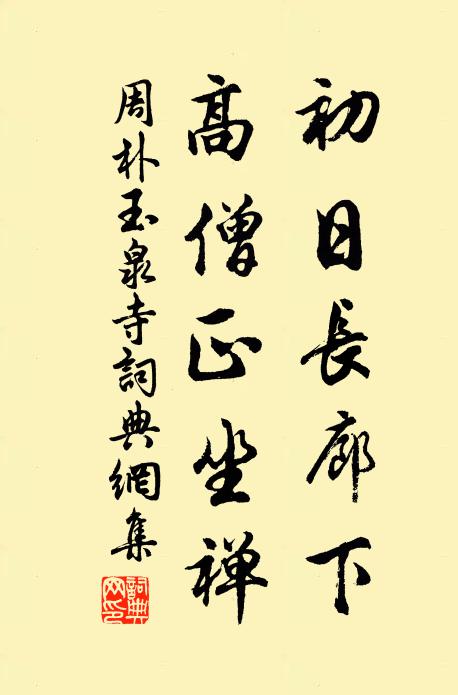 初日長廊下
高僧正坐禅
周朴玉泉寺詞典網集
詞典
网印